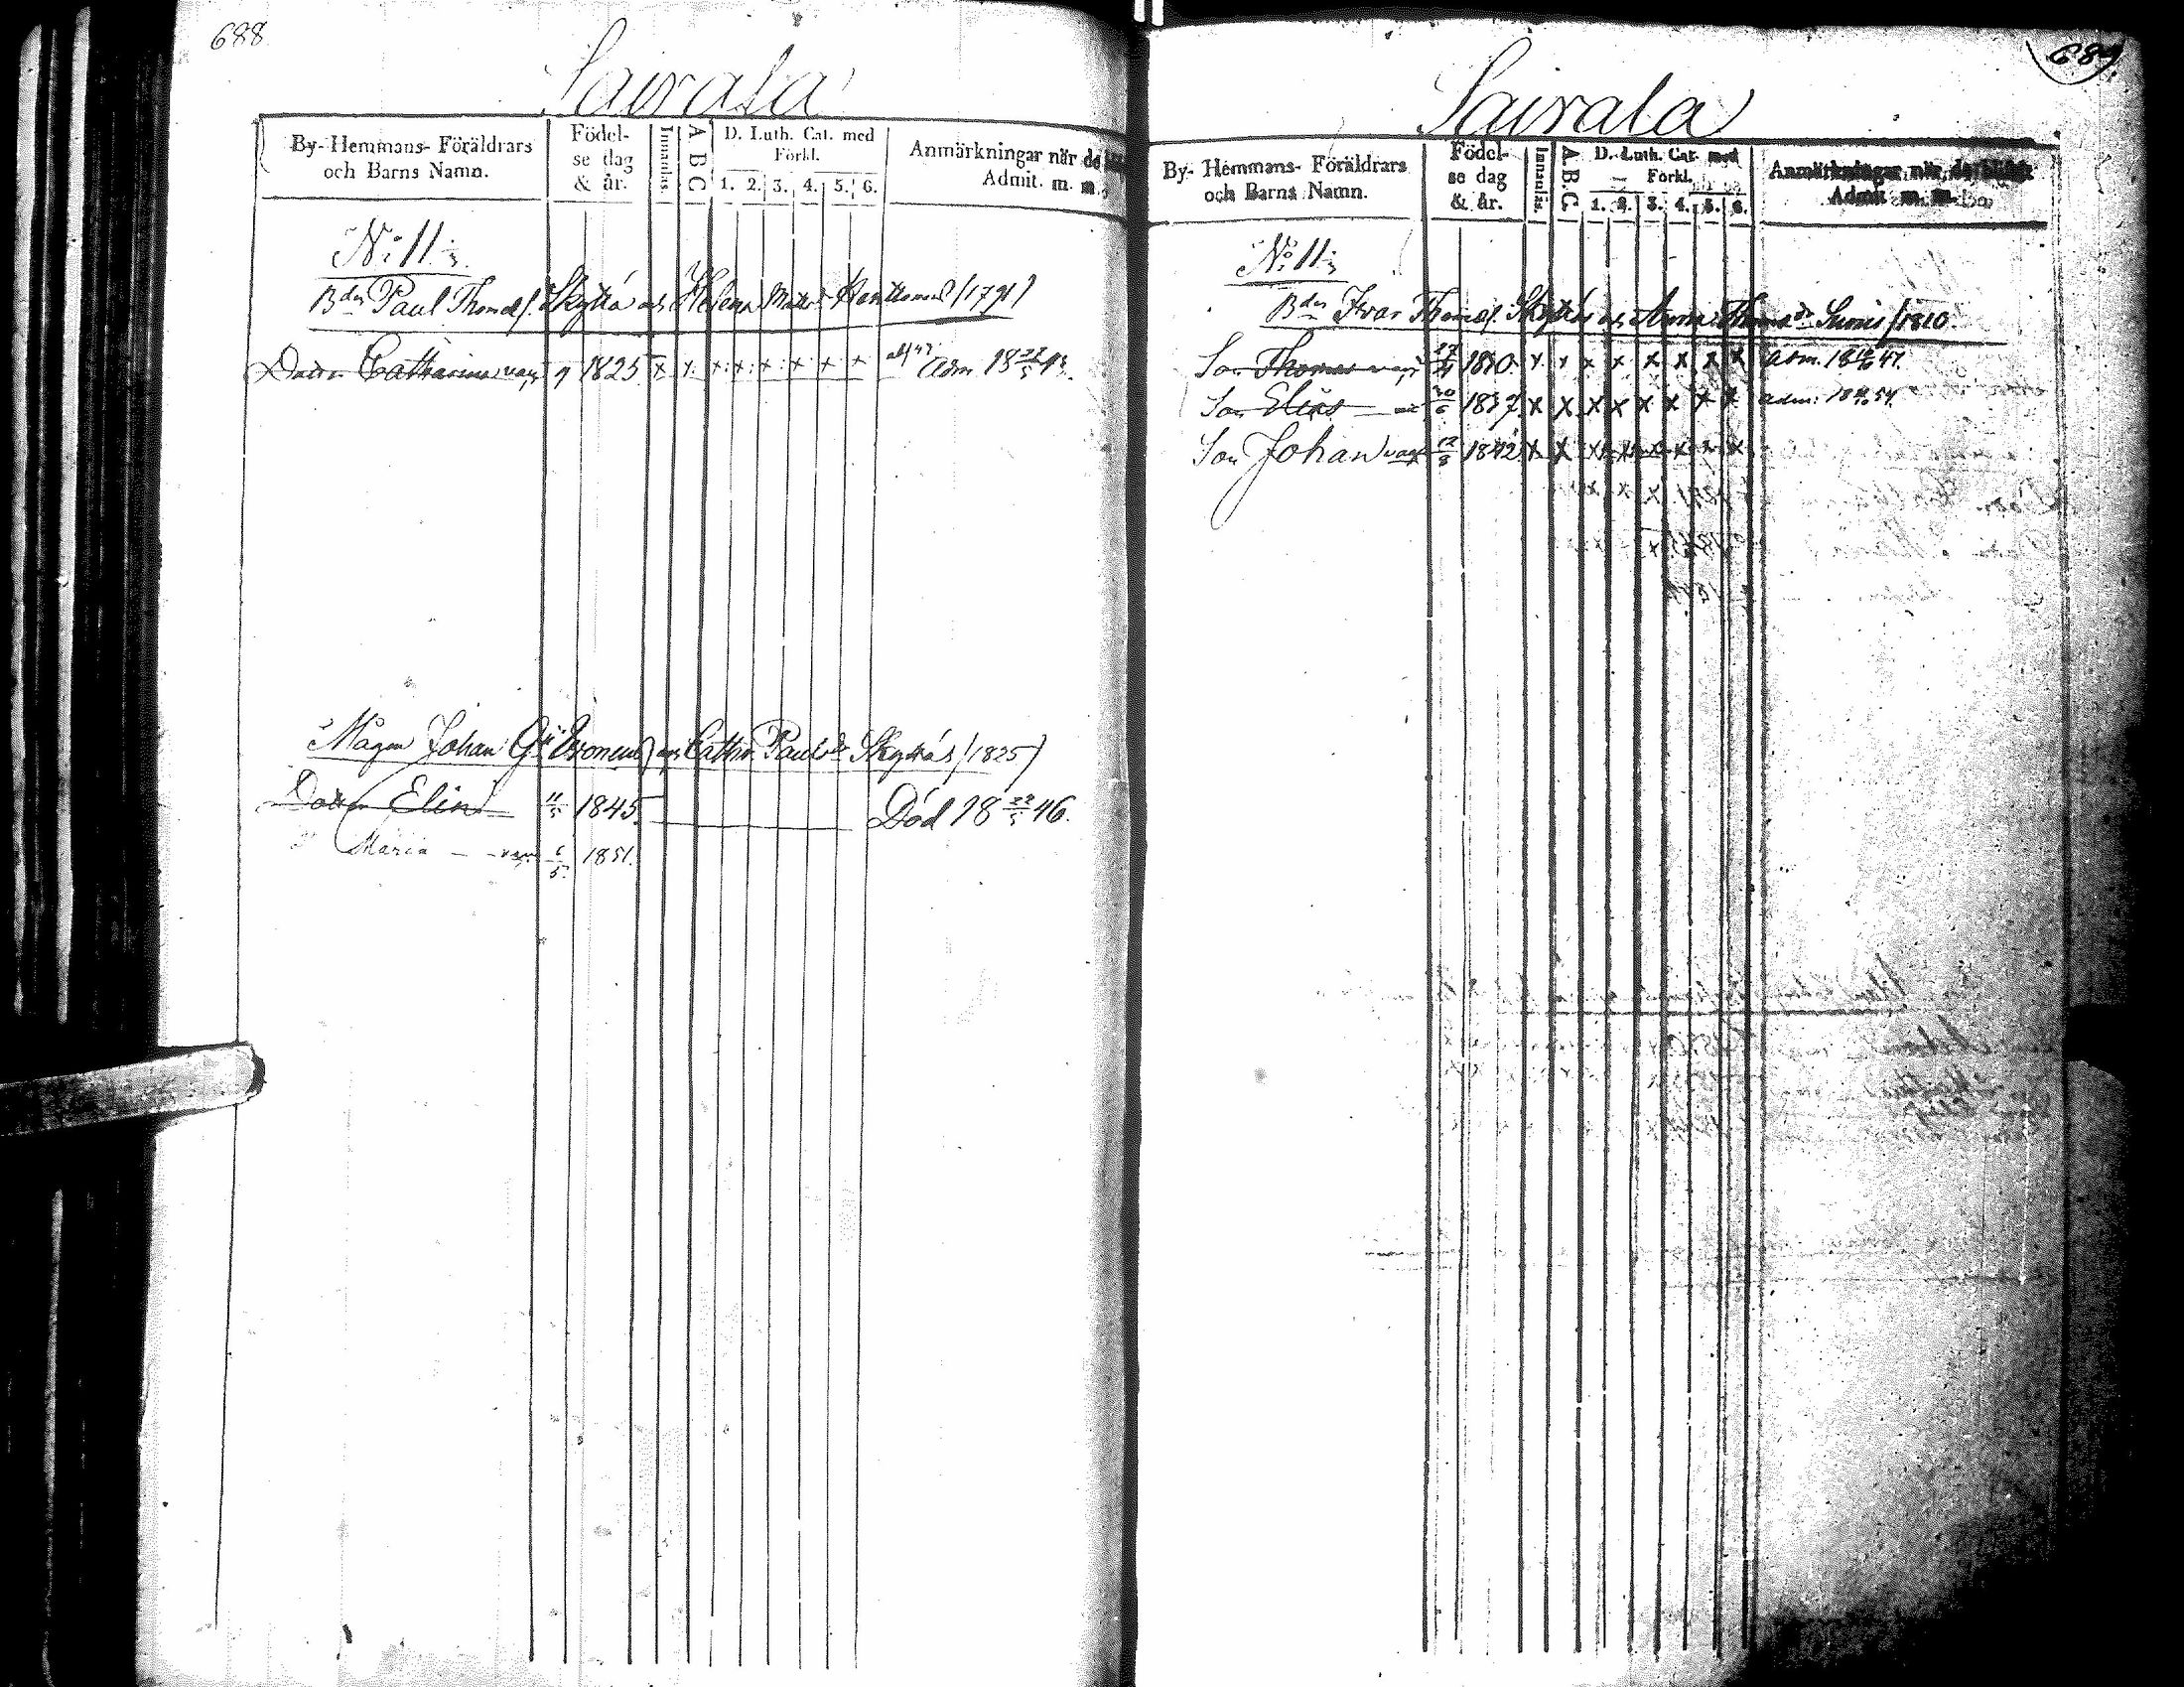 688
Sairala
By- Hemmans- Föräldrars och Barns Namn.
Födel- se dag & år.
Innanläs.
A B C
D. Luth. Cat. med Förkl.
1. 2. 3. 4. 5. 6.
Anmärkningar när de
Admit. m. m.
N:o 11.
Bdn Paul Thomas Skyttä och Helena Matts (1791)
Dottern Catharina vac. 9 1825 x x x x x x x x Adm. 18 43.
Mågen Johan och Cathr. Paulsdr Skyttä (1825)
Dottern Elin 11/5 1845. Död 18 22/5 46.
Maria vac. 6/5 1851.
689
Sairala
By- Hemmans- Föräldrars och Barns Namn.
Födel- se dag & år.
Innanläs.
A. B. C.
D. Luth. Cat. med Förkl.
1. 2. 3. 4. 5. 6.
Anmärkningar när de blifvit
Admit. m. m.
N:o 11.
Bdn Ivar Thomas Skyttä och Anna Thomasdr (1810.
Son Thomas vac. 1830. x x x x x x x x Adm. 18 47.
Son Elias 30/6 1837 x x x x x x x x adm: 18 54.
Son Johan vac. 12/8 1842. x x x x x x x x